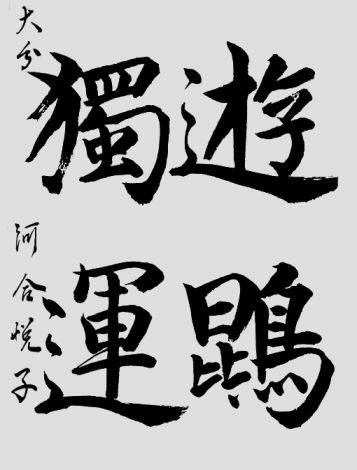 遊鵾
獨運
大分 河合悦子